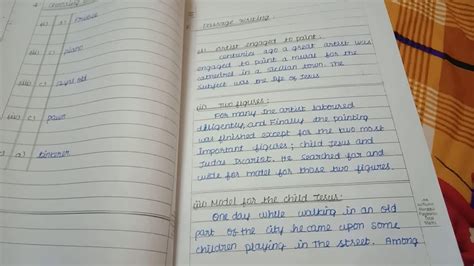 i) c) Friend
ii) c) piano
iii) c)
iv) c) Pawn
a)
Passage Writing
(i) Artist engaged to paint.
centuries ago a great artist was
engaged to paint a mural for the
cathedral in a sicilian town. The
subject was the life of Jesus
(ii) Two figures:
For many the artist laboured
diligently, and Finally the painting
was finished except for the two most
Important figures; child Jesus and
Judas Iscariot. He searched far and
wide for model for those two figures.
(iii) Model for the child Jesus:
One day while walking in an old
part of the city he came upon some
children playing in The street. Among